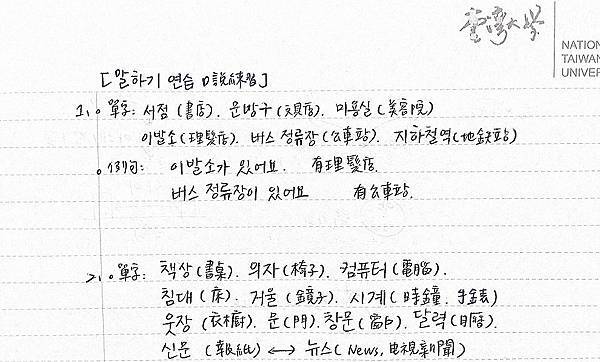 臺灣大學
NATION
TAIWAN
UNIVER
[말하기 연습 口說練習]
1. 。單字: 서점 (書店). 문방구 (文具店). 미용실 (美容院)
이발소 (理髮店). 버스 정류장 (公車站). 지하철역 (地鐵站)
。例句: 이발소가 있어요. 有理髮店.
버스 정류장이 있어요 有公車站.
2. 。單字: 책상 (書桌). 의자 (椅子). 컴퓨터 (電腦).
침대 (床). 거울 (鏡子). 시계 (時鐘, 手錶)
옷장 (衣櫥). 문 (門). 창문 (窗戶). 달력 (日曆).
신문 (報紙) ↔ 뉴스 (News, 電視新聞)